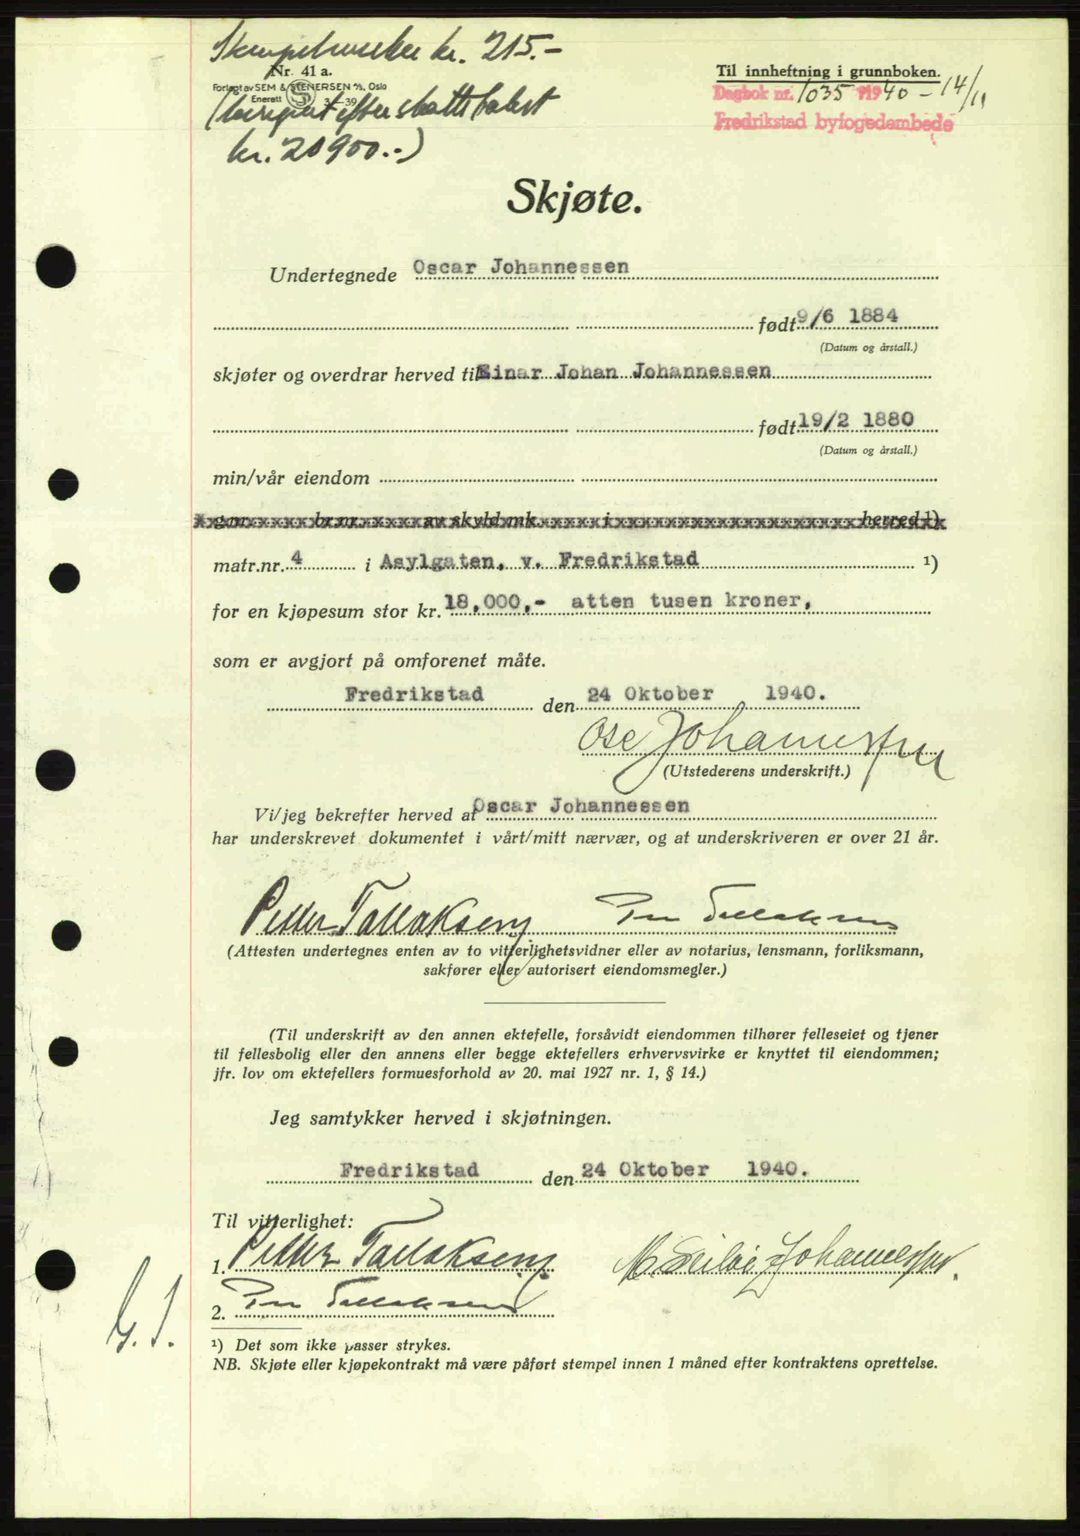 Stempelmerker kr. 215.-
Nr. 41 a.
Forlagt av SEM & STENERSEN A/S, Oslo
Enerett S 3-39
(beregnet efter skattebeløst
kr. 20900.-)
Til innheftning i grunnboken.
Dagbok nr. 1035 1940 - 14/11
Fredrikstad byfogedembede
Skjøte.
Undertegnede Oscar Johannessen
født 9/6 1884
(Datum og årstall.)
skjøter og overdrar herved til Einar Johan Johannessen
født 19/2 1880
(Datum og årstall.)
min/vår eiendom
g.nr. br.nr. av skyld mk. i herred ¹)
matr.nr. 4 i Asylgaten, v. Fredrikstad ¹)
for en kjøpesum stor kr. 18,000,- atten tusen kroner,
som er avgjort på omforenet måte.
Fredrikstad den 24 Oktober 1940.
Osc Johannessen
(Utstederens underskrift.)
Vi/jeg bekrefter herved at Oscar Johannessen
har underskrevet dokumentet i vårt/mitt nærvær, og at underskriveren er over 21 år.
Petter Tallaksen Per Tallaksen
(Attesten undertegnes enten av to vitterlighetsvidner eller av notarius, lensmann, forliksmann,
sakfører eller autorisert eiendomsmegler.)
(Til underskrift av den annen ektefelle, forsåvidt eiendommen tilhører felleseiet og tjener
til fellesbolig eller den annens eller begge ektefellers erhvervsvirke er knyttet til eiendommen;
jfr. lov om ektefellers formuesforhold av 20. mai 1927 nr. 1, § 14.)
Jeg samtykker herved i skjøtningen.
Fredrikstad den 24 Oktober 1940.
Til vitterlighet:
1. Petter Tallaksen Johannessen.
2. Per Tallaksen
G. J.
¹) Det som ikke passer strykes.
NB. Skjøte eller kjøpekontrakt må være påført stempel innen 1 måned efter kontraktens oprettelse.